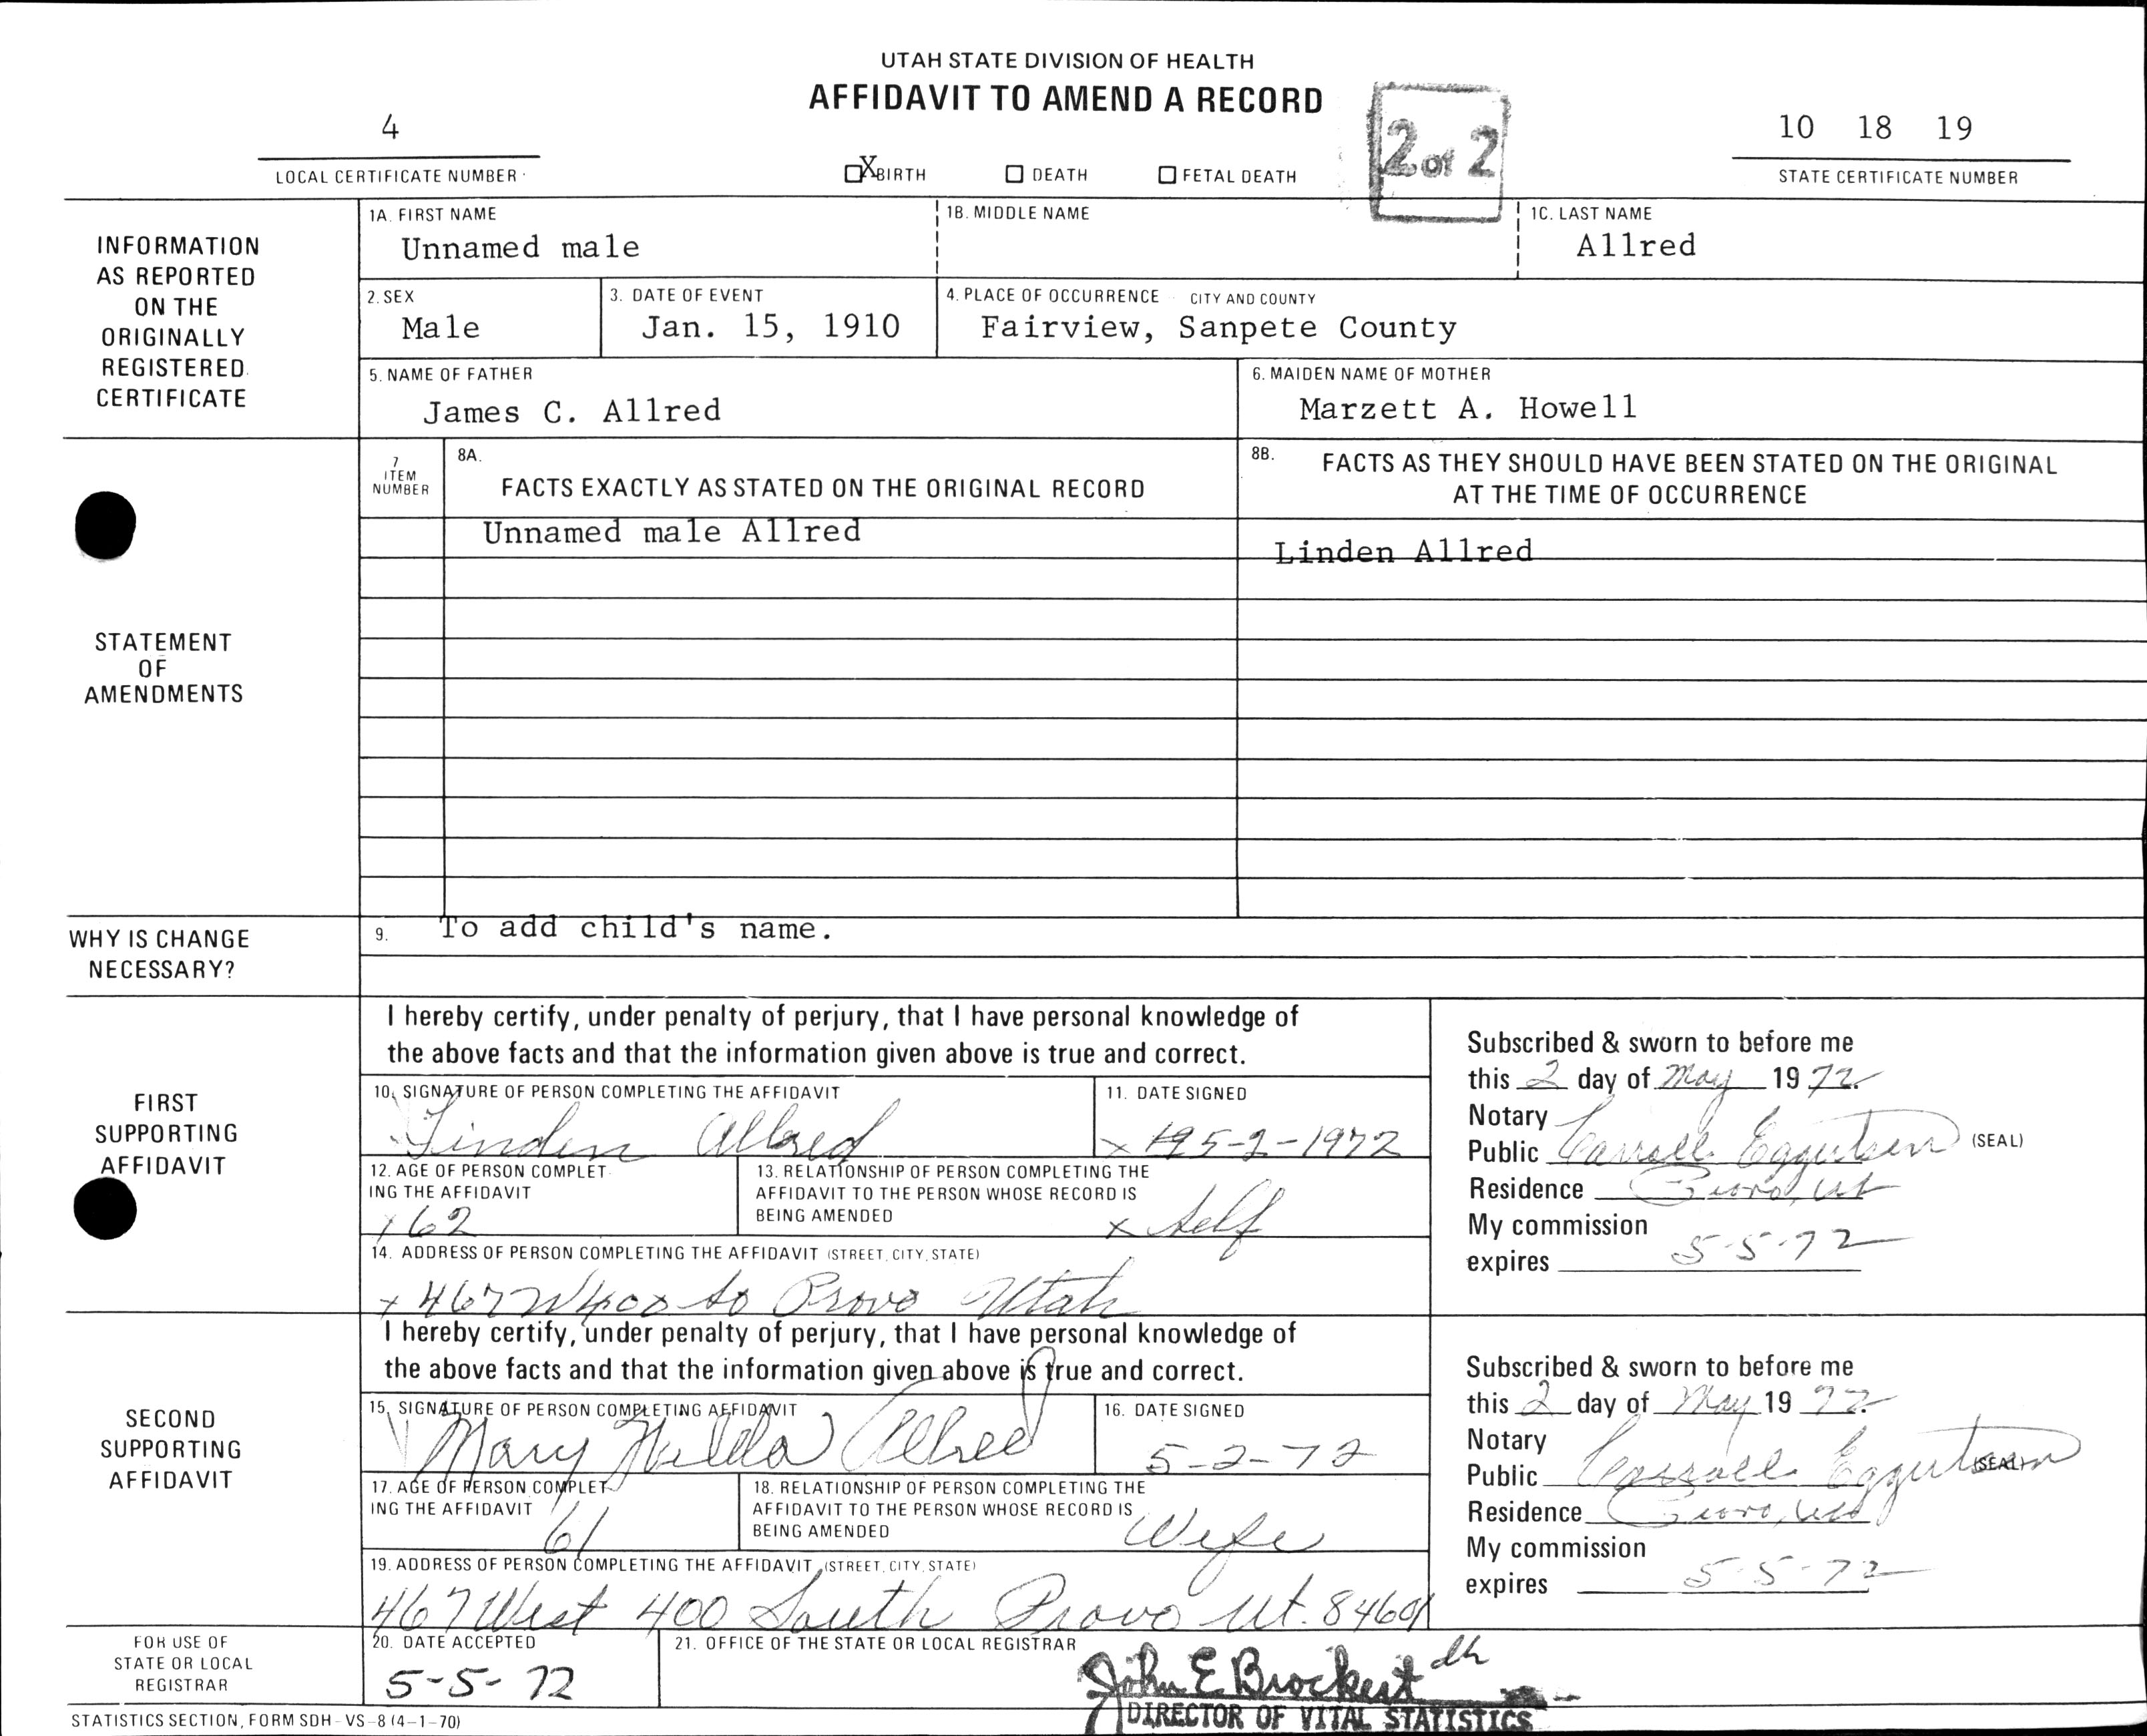 UTAH STATE DIVISION OF HEALTH
AFFIDAVIT TO AMEND A RECORD
2 of 2
4
LOCAL CERTIFICATE NUMBER
X BIRTH DEATH FETAL DEATH
10 18 19
STATE CERTIFICATE NUMBER
INFORMATION
AS REPORTED
ON THE
ORIGINALLY
REGISTERED
CERTIFICATE
1A. FIRST NAME
Unnamed male
1B. MIDDLE NAME
1C. LAST NAME
Allred
2. SEX
Male
3. DATE OF EVENT
Jan. 15, 1910
4. PLACE OF OCCURRENCE CITY AND COUNTY
Fairview, Sanpete County
5. NAME OF FATHER
James C. Allred
6. MAIDEN NAME OF MOTHER
Marzett A. Howell
STATEMENT
OF
AMENDMENTS
7
ITEM
NUMBER
8A.
FACTS EXACTLY AS STATED ON THE ORIGINAL RECORD
8B. FACTS AS THEY SHOULD HAVE BEEN STATED ON THE ORIGINAL
AT THE TIME OF OCCURRENCE
Unnamed male Allred
Linden Allred
WHY IS CHANGE
NECESSARY?
9. To add child's name.
FIRST
SUPPORTING
AFFIDAVIT
I hereby certify, under penalty of perjury, that I have personal knowledge of
the above facts and that the information given above is true and correct.
10. SIGNATURE OF PERSON COMPLETING THE AFFIDAVIT
Linden Allred
11. DATE SIGNED
x 5-2-1972
12. AGE OF PERSON COMPLET-
ING THE AFFIDAVIT
x 62
13. RELATIONSHIP OF PERSON COMPLETING THE
AFFIDAVIT TO THE PERSON WHOSE RECORD IS
BEING AMENDED
x Self
14. ADDRESS OF PERSON COMPLETING THE AFFIDAVIT (STREET, CITY, STATE)
x 467 W 400 So Provo Utah
Subscribed & sworn to before me
this 2 day of May 1972
Notary
Public Carroll Eggertsen (SEAL)
Residence Provo, Ut
My commission
expires 5-5-72
SECOND
SUPPORTING
AFFIDAVIT
I hereby certify, under penalty of perjury, that I have personal knowledge of
the above facts and that the information given above is true and correct.
15. SIGNATURE OF PERSON COMPLETING AFFIDAVIT
Mary Hilda Allred
16. DATE SIGNED
5-2-72
17. AGE OF PERSON COMPLET-
ING THE AFFIDAVIT
61
18. RELATIONSHIP OF PERSON COMPLETING THE
AFFIDAVIT TO THE PERSON WHOSE RECORD IS
BEING AMENDED
Wife
19. ADDRESS OF PERSON COMPLETING THE AFFIDAVIT (STREET, CITY, STATE)
467 West 400 South Provo Ut. 84601
Subscribed & sworn to before me
this 2 day of May 1972
Notary
Public Carroll Eggertsen (SEAL)
Residence Provo, Ut
My commission
expires 5-5-72
FOR USE OF
STATE OR LOCAL
REGISTRAR
20. DATE ACCEPTED
5-5-72
21. OFFICE OF THE STATE OR LOCAL REGISTRAR
John E Brockert dh
DIRECTOR OF VITAL STATISTICS
STATISTICS SECTION, FORM SDH-VS-8 (4-1-70)